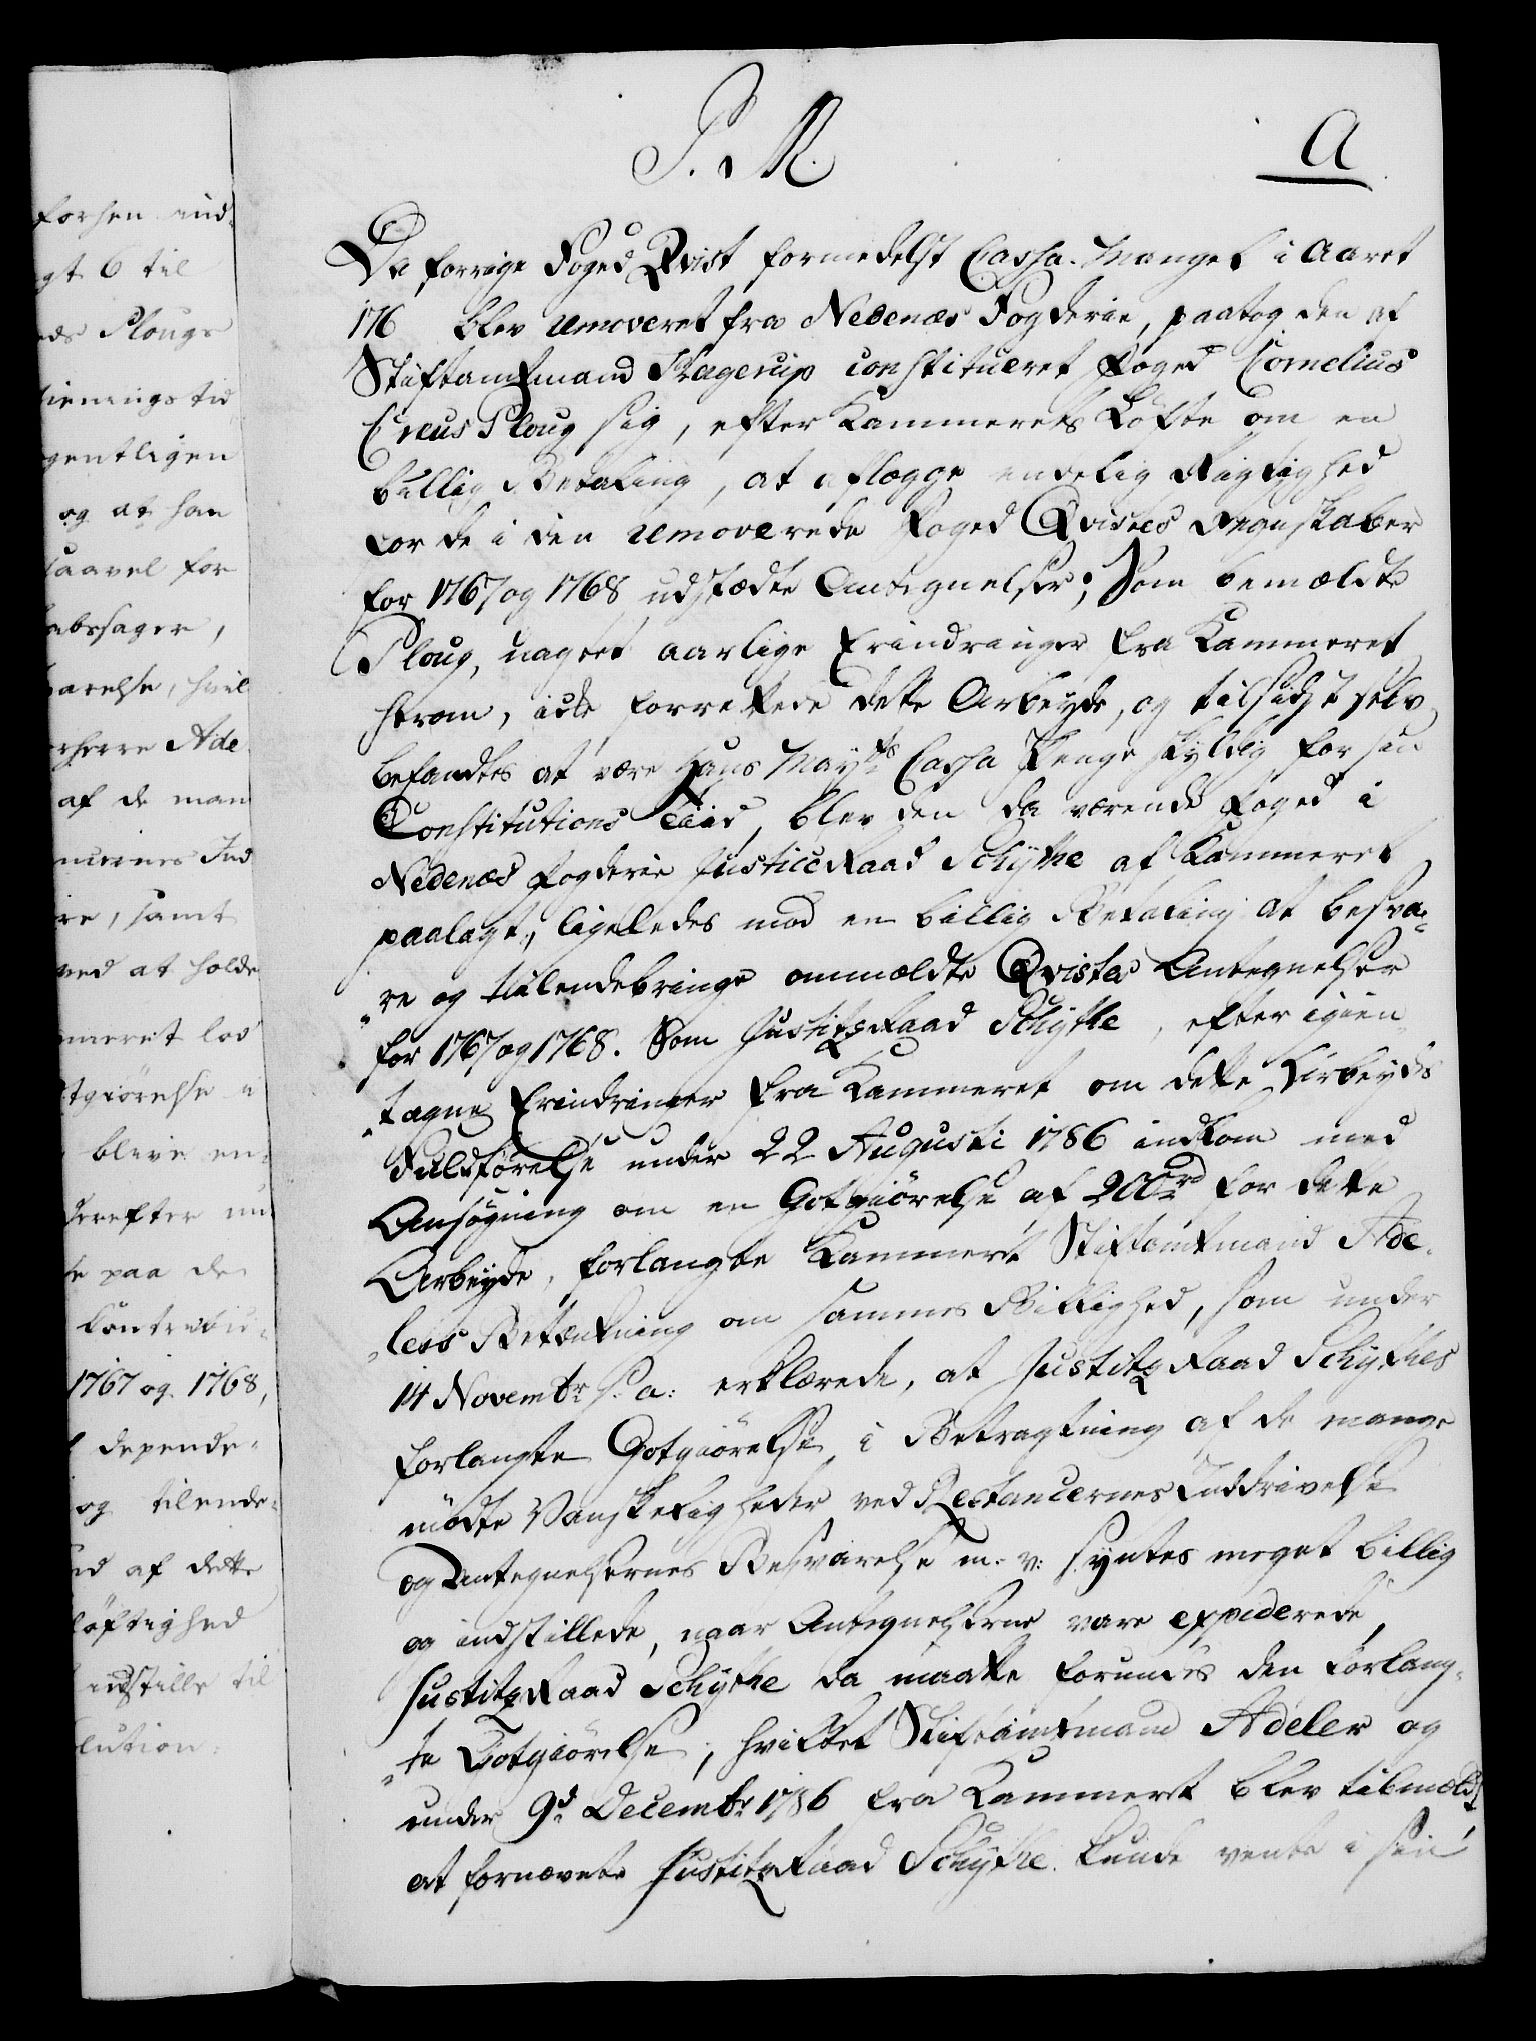 P. M.
A
Da forrige Foged Qvist formedelst Cassa-Mangel i Aaret
176 blev removeret fra Nedenæs Fogderie, paatog den af
Stiftamtmand Hagerup constitueret Foged Cornelius
Creus Ploug sig, efter Kammerets Løfte om en
billig Betaling, at aflægge endelig Rigtighed
for de i den removerede Foged Qvistes Regnskaber
for 1767 og 1768 udstædte Antegnelser; Som bemældte
Ploug, uagtet aarlige Erindringer fra Kammeret
herom, icke forrettede dette Arbeyde, og tilsidst selv
befandtes at være Hans Mayts Cassa Penge skyldig for sin
Constitutions Tiid, blev den da værende Foged i
Nedenæs Fogderie JusticeRaad Schythe af Kammeret
paalagt, ligeledes mod en billig Betaling at besva-
re og tilendebringe ommældte Qvistes Antegnelser
for 1767 og 1768. Som JustitzRaad Schythe, efter igien-
tagne Erindringer fra Kammeret om dette Arbeyds
Fuldførelse under 22 Augusti 1786 indkom med
Ansøgning om en Gotgiørelse af 200rd for dette
Arbeyde, forlangte Kammeret Stiftamtmand Ade-
lers Betænkning om sammes Billighed, som under
14 Novembr s. a: erklærede, at JustitzRaad Schythes
forlangte Gotgiørelse i Betragtning af de mange
mødte Vanskeligheder ved Restancernes Inddrivelse
og Antegnelsernes Besvarelse m. v: syntes meget billig
og indstillede, naar Antegnelserne vare expederede,
JustitzRaad Schythe da maatte forundes den forlang-
te Gotgiørelse, hvilket Stiftamtmand Adeler og
under 9d Decembr 1786 fra Kammeret blev tilmeldt
at fornævnte JustitzRaad Schythe kunde vente i sin
forhen ind-
gt 6 til
eds Plougs
tienings tid
gentligen
og at han
saavel for
abssager,
arelse, hvil
rherre Ade
af de man
nernes Ind
re, samt
ved at holde
meret lod
tgiørelse
blive en-
derefter nu
paa de
1767 og 1768,
depende-
og tilende-
ed af dette
løftighed
indstille til
lution.